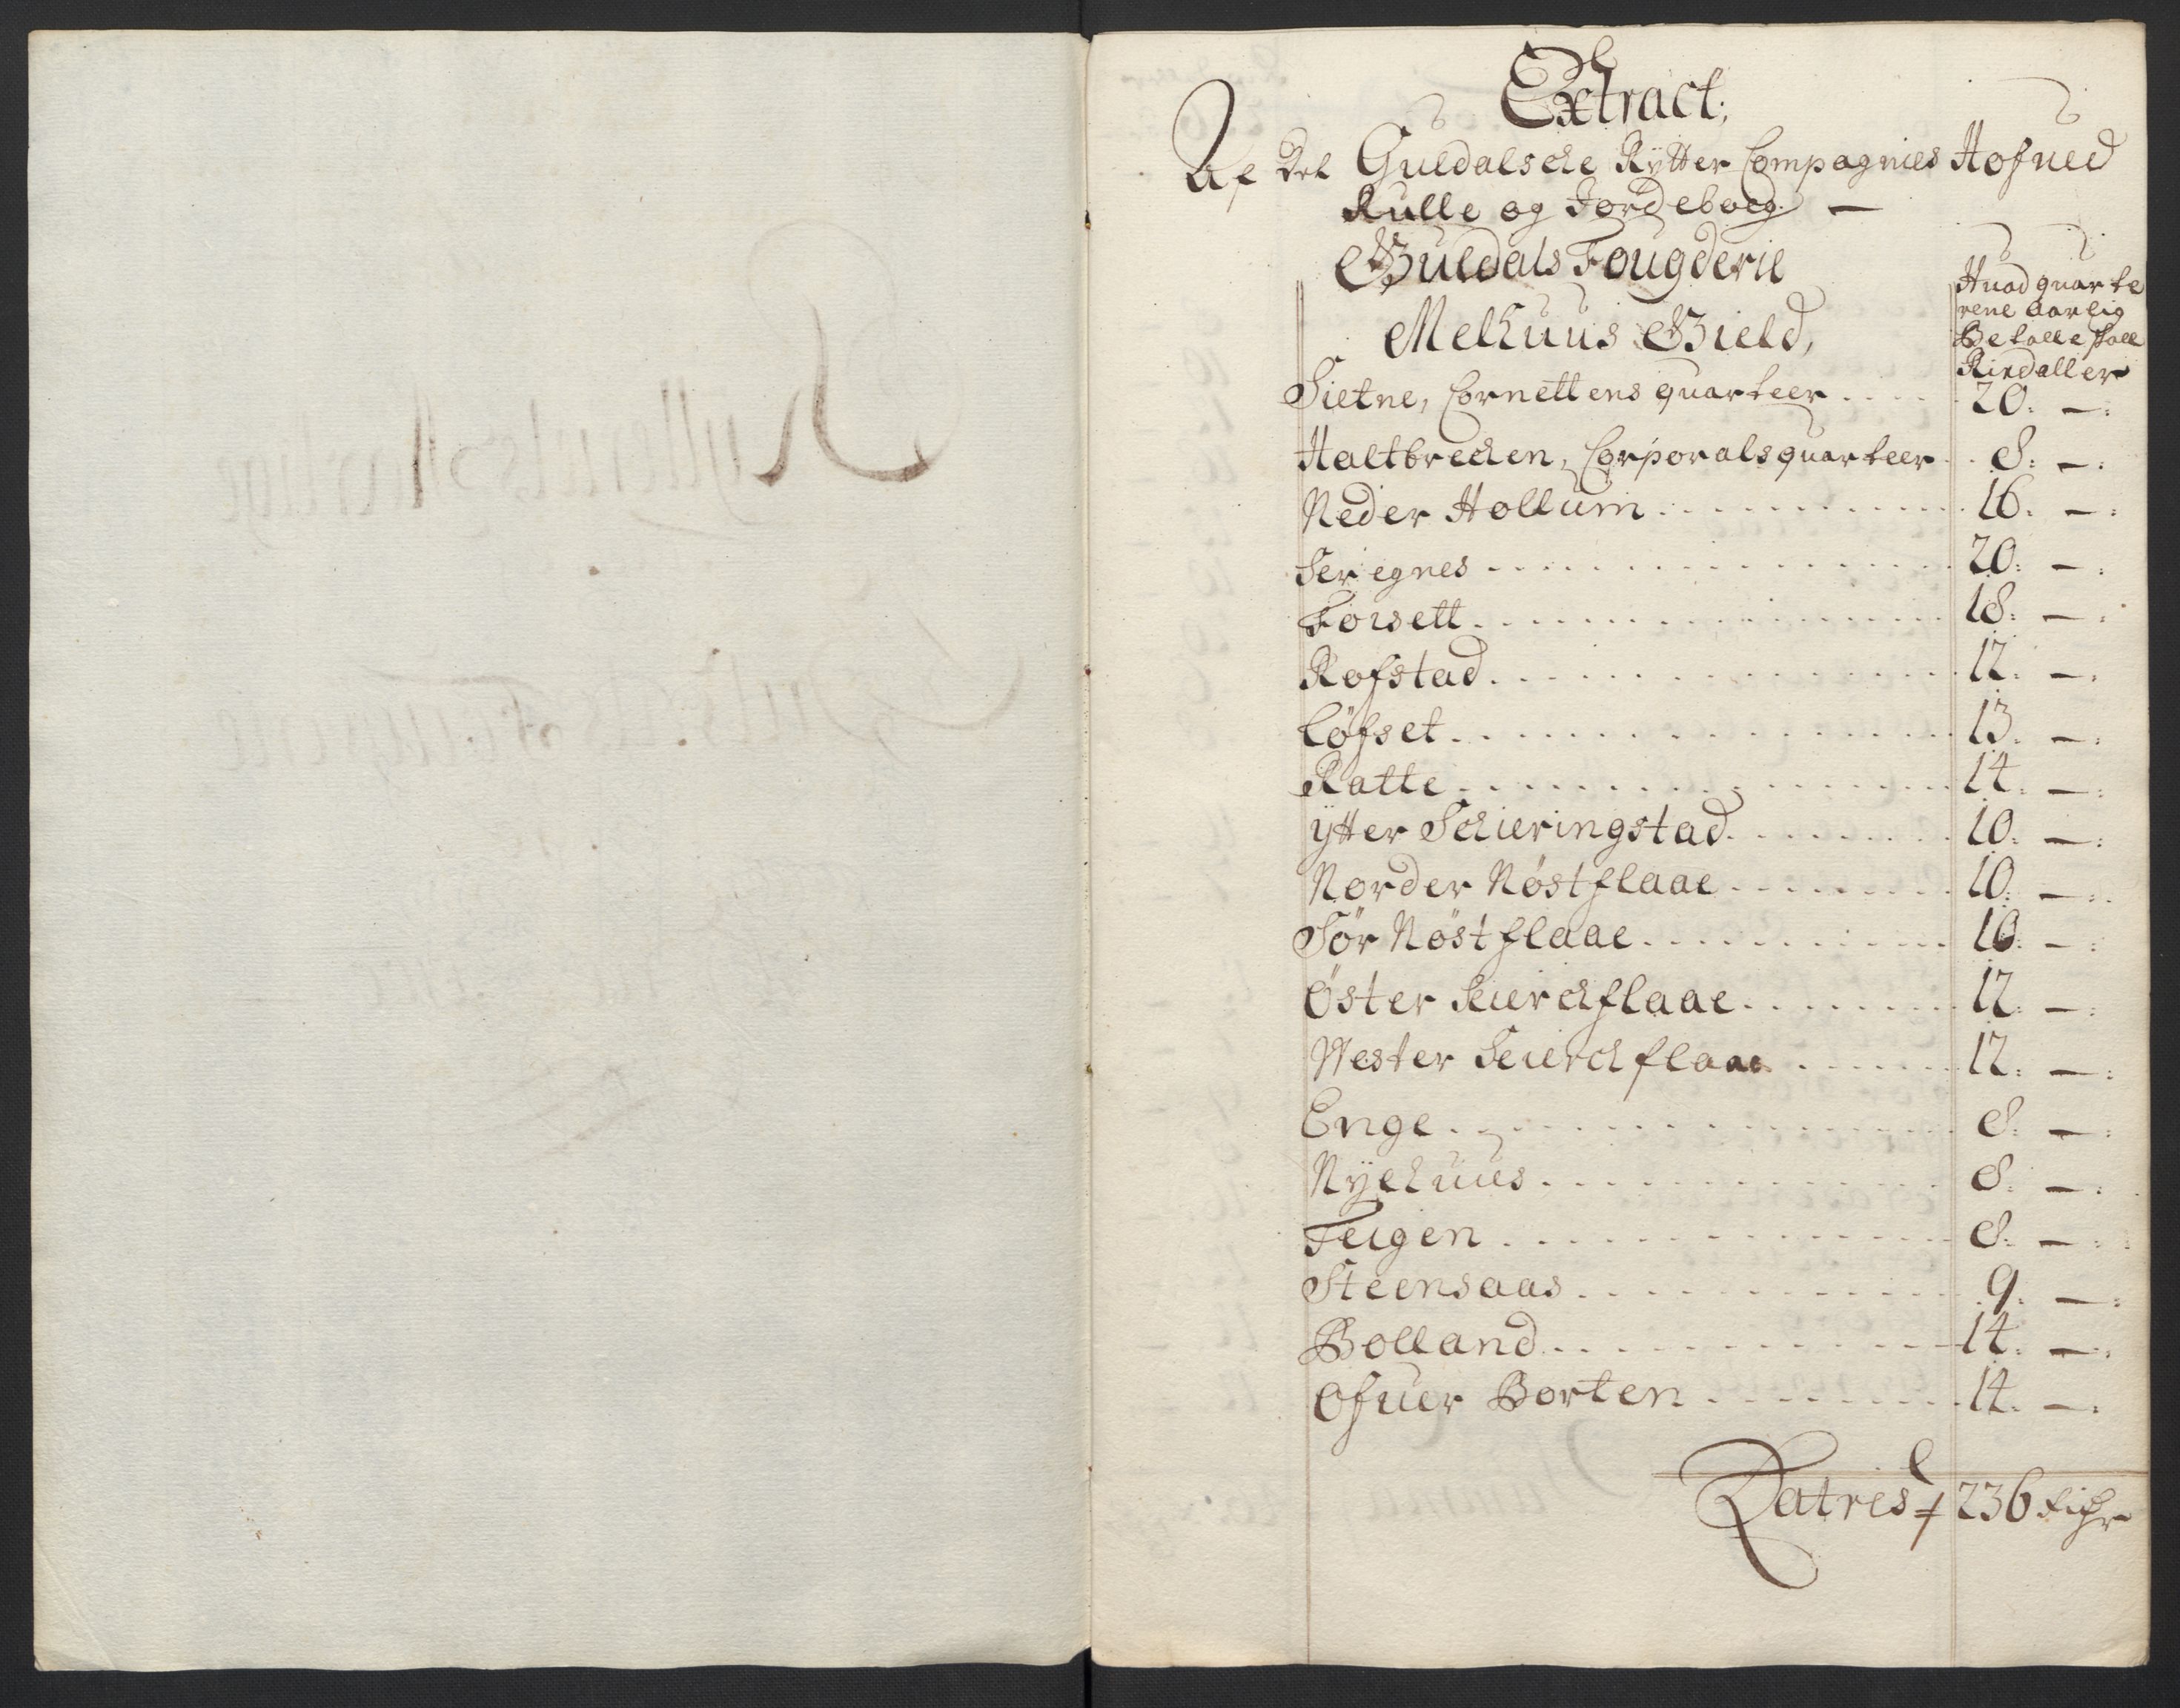 Extract:
Af Det Guldalsche Rÿtter Compagnies Hofued
Rulle og Jordeboeg. —
Guldals Fougderie
Huad quarte
rene aarlig
Betalle skall
Rixdaller
Melhuus Gield,
Sietne, Cornettens quarteer .... 20. —.
Haltbrechen, Corporals quarteer . . 8. —.
Neder Hollum ............ 16. —.
Ser egnes ............ 20. —.
Forsett ............ 18. —.
Rofstad ............ 12. —.
Løfset ............ 13. —.
Ratte ............ 14. —.
ÿtter Schieringstad ......... 10. —.
Norder Nöstflaae ......... 10. —.
Sör Nöstflaae ............ 10. —.
Öster Leierchflaae ......... 12. —.
Wester Leierchflaae ....... 12. —.
Enge ............ 8. —.
Nÿehuus ............ 8. —.
Teigen ............ 8. —.
Steensaas ............ 9. —.
Bolland ............ 14. —.
Ofuer Borten ......... 14. —.
Latries 236